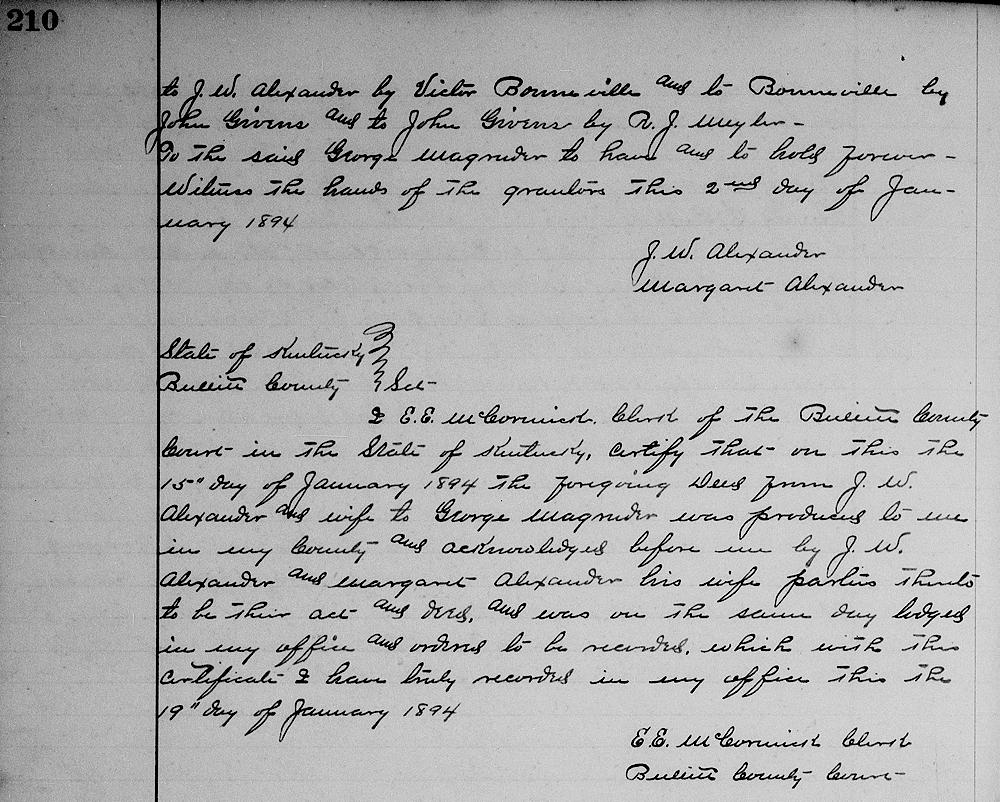 210
to J. W. Alexander by Victor Bonneville and to Bonneville by
John Givens and to John Givens by R. J. Meyler -
To the said George Magruder to have and to hold forever -
Witness the hands of the grantors this 2nd day of Jan-
uary 1894
J. W. Alexander
Margaret Alexander
State of Kentucky
Bullitt County } Sct
I E. E. McCormick. Clerk of the Bullitt County
Court in the State of Kentucky, certify that on this the
15" day of January 1894 the foregoing Deed from J. W.
Alexander and wife to George Magruder was produced to me
in my County and acknowledged before me by J. W.
Alexander and Margaret Alexander his wife parties thereto
to be their act and deed, and was on the same day lodged
in my office and ordered to be recorded, which with this
certificate I have truly recorded in my office this the
19" day of January 1894
E. E. McCormick Clerk
Bullitt County Court